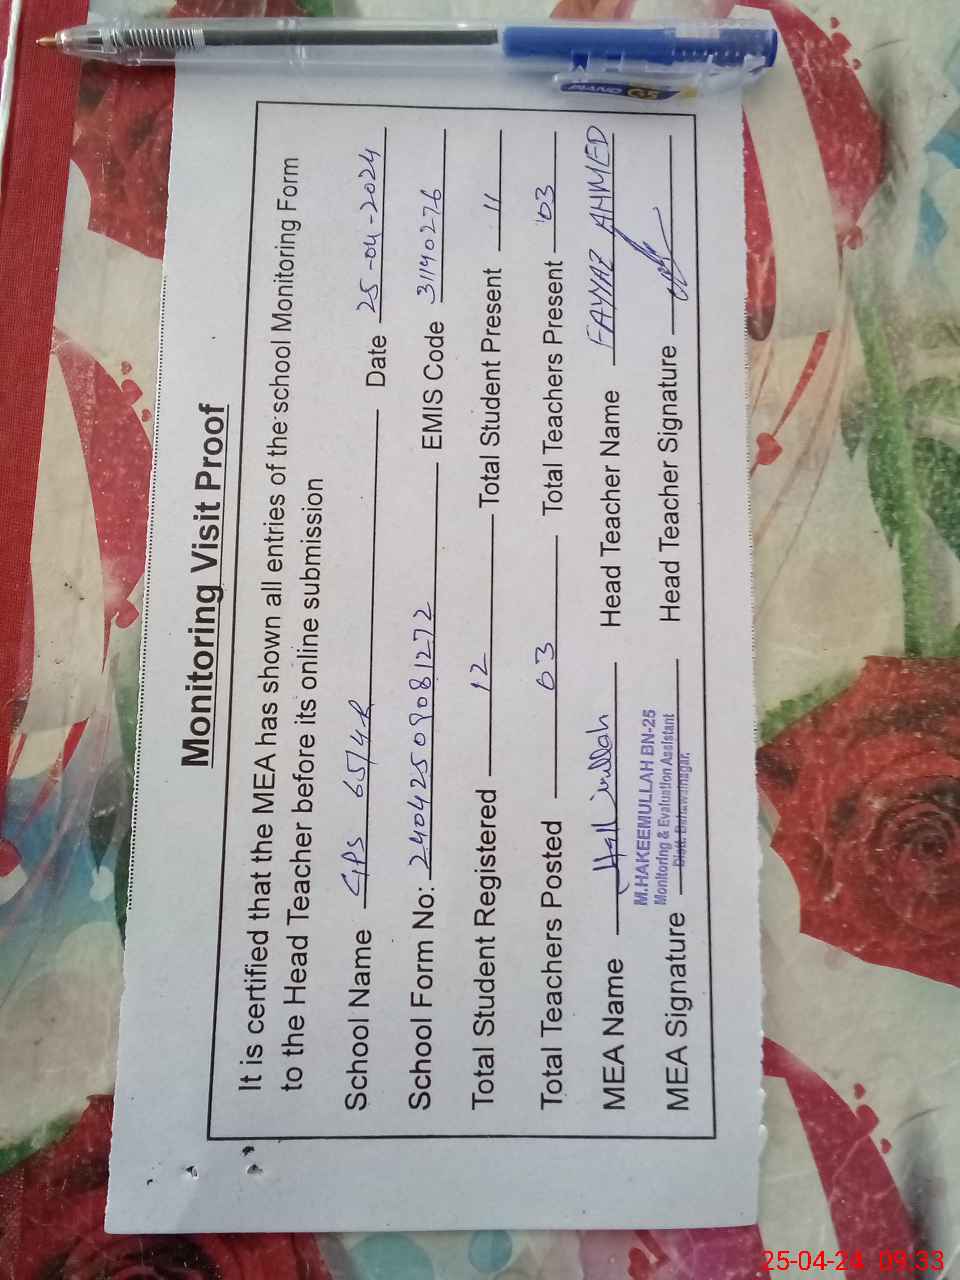 Monitoring Visit Proof
It is certified that the MEA has shown all entries of the school Monitoring Form
to the Head Teacher before its online submission
School Name GPS 65/4R Date 25-04-2024
School Form No: 24042509081272 EMIS Code 31140276
Total Student Registered 12 Total Student Present 11
Total Teachers Posted 03 Total Teachers Present 03
MEA Name Head Teacher Name FAYYAZ AHMED
M.HAKEEMULLAH BN-25
Monitoring & Evaluation Assistant
Distt. Bahawalnagar.
MEA Signature Head Teacher Signature
PIANO G5
25-04-24 09:33